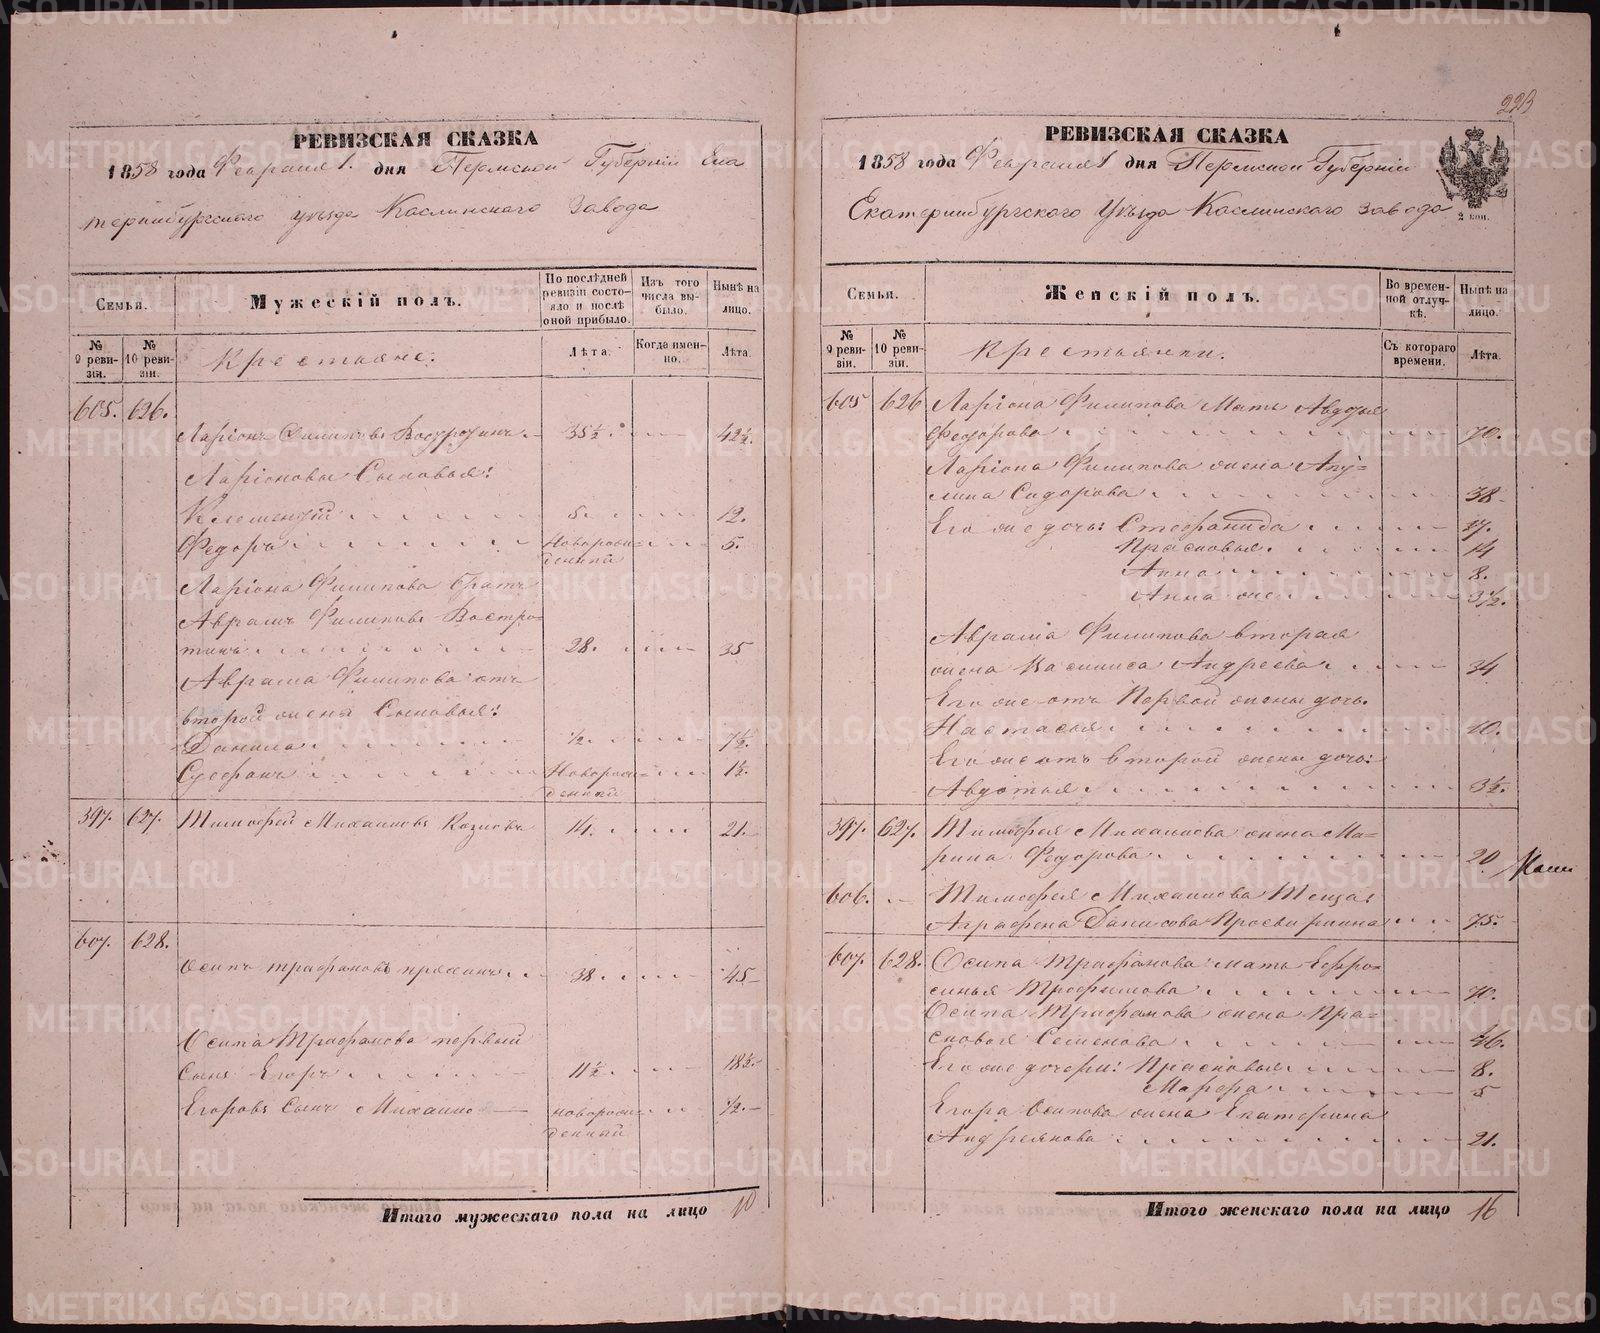 РЕВИЗСКАЯ СКАЗКА
1858 года Февраля 1. дня Пермской Губерніи Ека
теринбургскаго уѣзда Каслинскаго Завода
Семьи.
Мужескій полъ.
По послѣдней ревизіи состояло и послѣ оной прибыло.
Изъ того числа выбыло.
Нынѣ на лицо.
№ 9 ревизіи.
№ 10 ревизіи.
Крестьяне.
Лѣта.
Когда именно.
Лѣта.
605. 626.
Ларіонъ Филиповъ Востротинъ 35½. 42½.
Ларіоновы Сыновья:
Клементій 5. 12.
Федоръ Новорож- 5.
денный
Ларіона Филипова братъ
Аврамъ Филиповъ Востро-
тинъ 28. 35
Аврама Филипова отъ
второй жены Сыновья:
Данила ½. 7½.
Стефанъ Новорож- 1½.
денный
397. 627. Тимофей Михаиловъ Козловъ 14. 21.
607. 628.
Осипъ Трафановъ 38. 45
Осипа Трафанова первый
Сынъ Егоръ 11½. 18½.
Егоровъ Сынъ Михаило новорож- ½.
денный
Итого мужескаго пола на лицо 10
223
РЕВИЗСКАЯ СКАЗКА
1858 года Февраля 1 дня Пермской Губерніи
Екатеринбургского Уѣзда Каслинскаго завода
2 коп.
Семьи.
Женскій полъ.
Во временной отлучкѣ.
Нынѣ на лицо.
№ 9 ревизіи.
№ 10 ревизіи.
Крестьянки.
Съ котораго времени.
Лѣта.
605 626 Ларіона Филипова Мать Авдотья
Федорова 70.
Ларіона Филипова жена Аку-
лина Сидорова 38
Его же дочь: Стефанида 17.
Прасковья. 14
Анна 8.
Анна же 3½.
Аврама Филипова вторая
жена Василиса Андреева 34
Его же отъ Первой жены дочь
Настасья 10.
Его же отъ второй жены дочь:
Авдотья 3½.
397. 627. Тимофея Михаилова жена Ма-
рина Федорова 20
606. Тимофея Михаилова Теща
Аграфена Данилова 75.
607. 628. Осипа Трафанова мать Ефро-
синья Трофимова 70.
Осипа Трафанова жена Пра-
сковья Семенова 46.
Его же дочери: Прасковья 8.
Марфа 5
Егора Осипова жена Екатерина
Андреянова 21.
Итого женскаго пола на лицо 16
METRIKI.GASO-URAL.RU